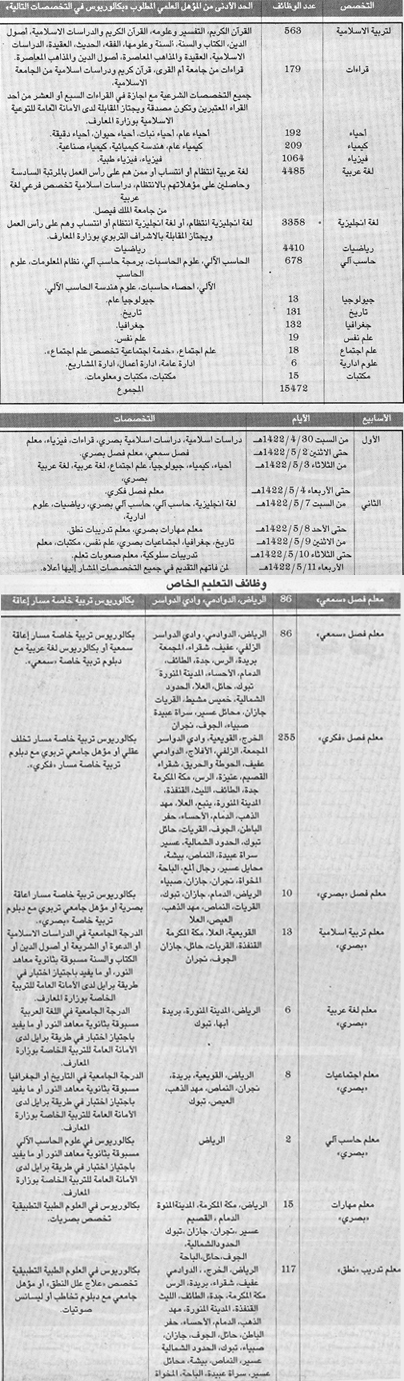 التخصص عدد الوظائف الحد الأدنى من المؤهل العلمي المطلوب «بكالوريوس في التخصصات التالية»
لتربية الاسلامية 563 القرآن الكريم، التفسير وعلومه، القرآن الكريم والدراسات الاسلامية، أصول
الدين، الكتاب والسنة، السنة وعلومها، الفقه، الحديث، العقيدة، الدراسات
الاسلامية، العقيدة والمذاهب المعاصرة، أصول الدين والمذاهب المعاصرة.
قراءات 179 قراءات من جامعة أم القرى، قرآن كريم ودراسات اسلامية من الجامعة
الاسلامية.
جميع التخصصات الشرعية مع اجازة في القراءات السبع أو العشر من أحد
القراء المعتبرين وتكون مصدقة ويجتاز المقابلة لدى الأمانة العامة للتوعية
الاسلامية بوزارة المعارف.
أحياء 192 أحياء عام، أحياء نبات، أحياء حيوان، أحياء دقيقة.
كيمياء 209 كيمياء عام، هندسة كيميائية، كيمياء صناعية.
فيزياء 1064 فيزياء، فيزياء طبية.
لغة عربية 4485 لغة عربية انتظام أو انتساب أو ممن هم على رأس العمل بالمرتبة السادسة
وحاصلين على مؤهلاتهم بالانتظام، دراسات اسلامية تخصص فرعي لغة
عربية
من جامعة الملك فيصل.
لغة انجليزية 3358 لغة انجليزية انتظام، أو لغة انجليزية انتظام أو انتساب وهم على رأس العمل
ويجتاز المقابلة بالاشراف التربوي بوزارة المعارف.
رياضيات 4410 رياضيات
حاسب آلي 678 الحاسب الآلي، علوم الحاسبات، برمجة حاسب آلي، نظام المعلومات، علوم
الحاسب
الآلي، احصاء حاسبات، علوم هندسة الحاسب الآلي.
جيولوجيا 13 جيولوجيا عام.
تاريخ 131 تاريخ.
جغرافيا 132 جغرافيا.
علم نفس 19 علم نفس.
علم اجتماع 18 علم اجتماع، «خدمة اجتماعية تخصص علم اجتماع».
علوم ادارية 6 ادارة عامة، ادارة أعمال، ادارة المشاريع.
مكتبات 15 مكتبات، مكتبات ومعلومات.
15472 المجموع
الأسابيع الأيام التخصصات
الأول من السبت 1422/4/30هـ دراسات اسلامية، دراسات اسلامية بصري، قراءات، فيزياء، معلم
حتى الاثنين 1422/5/2هـ فصل سمعي، معلم فصل بصري.
من الثلاثاء 1422/5/3هـ أحياء، كيمياء، جيولوجيا، علم اجتماع، لغة عربية، لغة عربية
بصري،
حتى الأربعاء 1422/5/4هـ معلم فصل فكري.
الثاني من السبت 1422/5/7هـ لغة انجليزية، حاسب آلي، حاسب آلي بصري، رياضيات، علوم
ادارية،
حتى الأحد 1422/5/8هـ معلم مهارات بصري، معلم تدريبات نطق.
من الاثنين 1422/5/9هـ تاريخ، جغرافيا، اجتماعيات بصري، علم نفس، مكتبات، معلم
حتى الثلاثاء 1422/5/10هـ تدريبات سلوكية، معلم صعوبات تعلم.
الأربعاء 1422/5/11هـ لمن فاتهم التقديم في جميع التخصصات المشار إليها أعلاه.
وظائف التعليم الخاص
معلم فصل «سمعي» 86 الرياض، الدوادمي، وادي الدواسر بكالوريوس تربية خاصة مسار إعاقة
معلم فصل «سمعي» 86 الرياض، الدوادمي، وادي الدواسر بكالوريوس تربية خاصة مسار إعاقة
الزلفي، عفيف، شقراء، المجمعة سمعية أو بكالوريوس لغة عربية مع
بريدة، الرس، جدة، الطائف، دبلوم تربية خاصة «سمعي».
الدمام، الأحساء، المدينة المنورة
تبوك، حائل، العلا، الحدود
الشمالية، خميس مشيط، القريات
جازان، محائل عسير، سراة عبيدة
صبياء، الجوف، نجران
معلم فصل «فكري» 255 الخرج، القويعية، وادي الدواسر بكالوريوس تربية خاصة مسار تخلف
المجمعة، الزلفي، الأفلاج، الدوادمي عقلي أو مؤهل جامعي تربوي مع دبلوم
عفيف، الحوطة والحريق، شقراء تربية خاصة مسار «فكري».
القصيم، عنيزة، الرس، مكة المكرمة
جدة، الطائف، الليث، القنفذة،
المدينة المنورة، ينبع، العلا، مهد
الذهب، الدمام، الأحساء، حفر
الباطن، الجوف، القريات، حائل
تبوك، الحدود الشمالية، عسير
سراة عبيدة، النماص، بيشة،
محايل عسير، رجال ألمع، الباحة
المخواة، نجران، جازان، صبياء
معلم فصل «بصري» 10 الرياض، الدمام، جازان، تبوك، بكالوريوس تربية خاصة مسار اعاقة
القريات، النماص، مهد الذهب، بصرية أو مؤهل جامعي تربوي مع دبلوم
العيص، العلا تربية خاصة «بصري».
معلم تربية اسلامية 13 القويعية، العلا، مكة المكرمة الدرجة الجامعية في الدراسات الاسلامية
«بصري» القنفذة، القريات، حائل، جازان أو الدعوة أو الشريعة أو أصول الدين أو
الجوف، نجران الكتاب والسنة مسبوقة بثانوية معاهد
النور، أو ما يفيد باجتياز اختبار في
طريقة برايل لدى الأمانة العامة للتربية
الخاصة بوزارة المعارف.
معلم لغة عربية 6 الرياض، المدينة المنورة، بريدة الدرجة الجامعية في اللغة العربية
«بصري» أبها، تبوك مسبوقة بثانوية معاهد النور أو ما يفيد
باجتياز اختبار في طريقة برايل لدى
الأمانة العامة للتربية الخاصة بوزارة
المعارف.
معلم اجتماعيات 8 الرياض، القويعية، بريدة، الدرجة الجامعية في التاريخ أو الجغرافيا
«بصري» نجران، النماص، مهد الذهب، مسبوقة بثانوية معاهد النور أو ما يفيد
العيص، تبوك باجتياز اختبار في طريقة برايل لدى
الأمانة العامة للتربية الخاصة بوزارة
المعارف.
معلم حاسب آلي 2 الرياض بكالوريوس في علوم الحاسب الآلي
«بصري» مسبوقة بثانوية معاهد النور أو ما يفيد
باجتياز اختبار في طريقة برايل لدى
الأمانة العامة للتربية الخاصة بوزارة
المعارف.
معلم مهارات 15 الرياض، مكة المكرمة، المدينة المنورة بكالوريوس في العلوم الطبية التطبيقية
«بصري» الدمام، القصيم تخصص بصريات.
عسير، نجران، جازان، تبوك
الحدود الشمالية،
الجوف، حائل، الباحة
معلم تدريب «نطق» 117 الرياض، الخرج، الدوادمي بكالوريوس في العلوم الطبية التطبيقية
عفيف، شقراء، بريدة، الرس تخصص «علاج علل النطق» أو مؤهل
مكة المكرمة، جدة، الطائف، الليث جامعي مع دبلوم تخاطب أو ليسانس
القنفذة، المدينة المنورة، مهد صوتيات.
الذهب، الدمام، الأحساء، حفر
الباطن، حائل، الجوف، جازان،
صبياء، تبوك، الحدود الشمالية
عسير، النماص، بيشة، محائل
عسير، سراة عبيدة، الباحة، المخواة